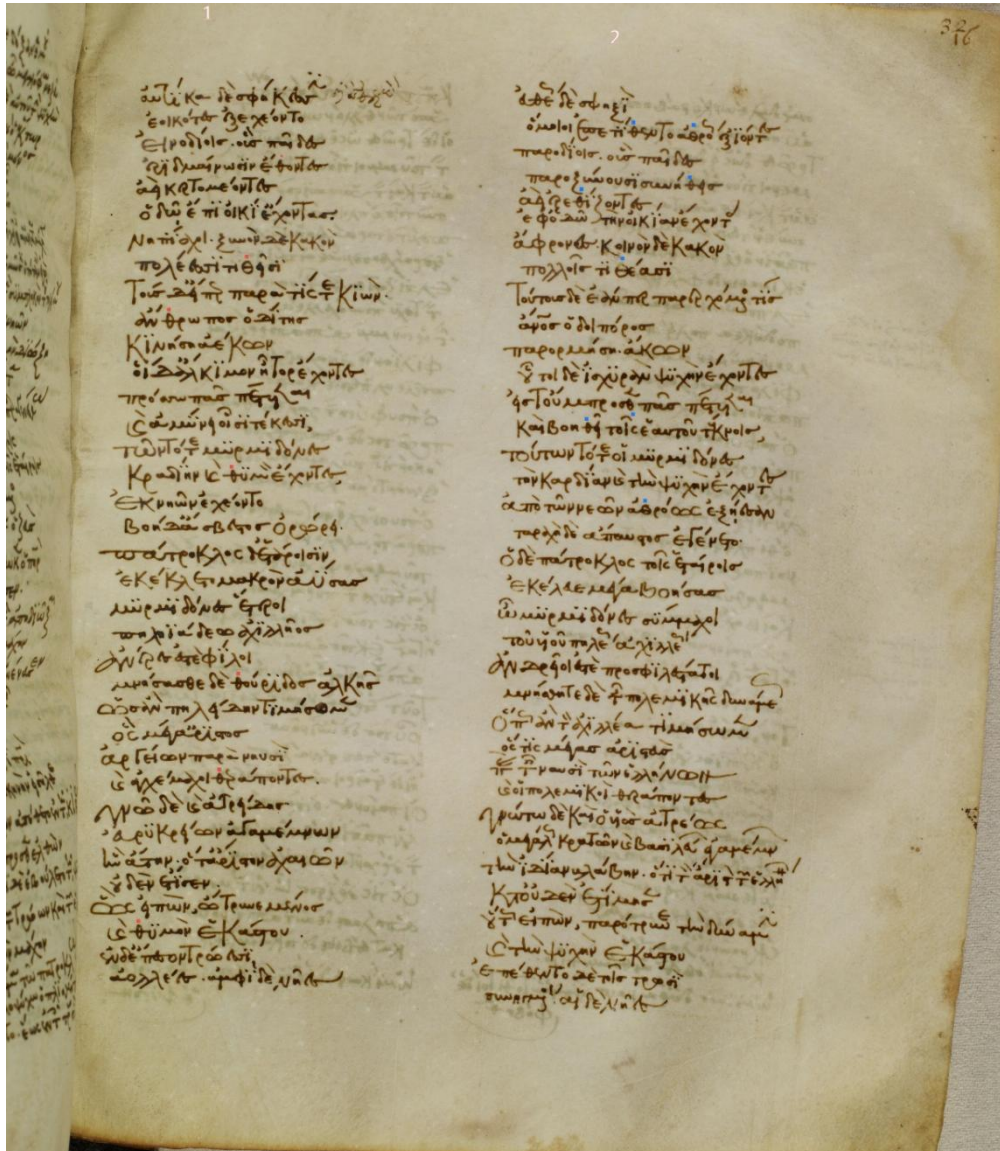 αὐτίκα δὲ σφήκεσσιν
ἐοικότες ἐξεχέοντο
εἰνοδίοις· οὓς παῖδες
ἐριδμαίνωσιν ἔθοντες
αἰεὶ κερτομέοντες
ὁδῷ ἔπι οἰκί' ἔχοντας·
νηπίαχοι· ξυνὸν δὲ κακὸν
πολέεσσι τιθεῖσι
τοὺς δ' εἴ περ παρά τίς τε κιὼν·
ἄνθρωπος ὁδίτης
κινήσῃ ἀέκων
οἱ δ' ἄλκιμον ἦτορ ἔχοντες
πρόσσω πᾶς πέτεται
καὶ ἀμύνει οἷσι τέκεσσι,
τῶν τότε μυρμιδόνες
κραδίην καὶ θυμὸν ἔχοντες,
ἐκ νηῶν ἐχέοντο
βοὴ δ' ἄσβεστος ὀρώρει·
πάτροκλος δ' ἑτάροισιν
ἐκέκλετο μακρὸν ἀΰσας
μυρμιδόνες ἕταροι
πηληϊάδεω ἀχιλλῆος
ἀνέρες ἐστὲ φίλοι
μνήσασθε δὲ θούριδος ἀλκῆς
ὡς ἂν πηλείδην τιμήσομεν
ὃς μέγ' ἄριστος
ἀργείων παρὰ νηυσὶ
καὶ ἀγχέμαχοι θεράποντες.
γνῷ δὲ καὶ ἀτρείδης
εὐρὺ κρείων ἀγαμέμνων
ἣν ἄτην· ὅτ' ἄριστον ἀχαιῶν
οὐδὲν ἔτισεν·
ὣς εἰπὼν, ὤτρυνε μένος
καὶ θυμὸν ἑκάστου·
ἐν δ' ἔπεσον τρώεσσι,
ἀολλέες· ἀμφὶ δὲ νῆες
εὐθέως δὲ σφηξὶ
ὅμοιοι
παροδίοις· οὓς παῖδες
παροξύνουσι συνήθως
ἀεὶ ἐρεθίζοντες
ἐφ' ὁδῷ τὴν οἰκίαν ἔχοντας
ἄφρονες κοινὸν δὲ κακὸν
πολλοῖς τιθέασι
τούτοις δὲ ἐάν περ παρερχόμενός τις
ἄνθρωπος ὁδοιπόρος
παρορμήσῃ ἄκων
οὗτοι δὲ ἰσχυρὰν ψυχὴν ἔχοντες
εἰς τοὔμπροσθεν πᾶς πέτεται
καὶ βοηθεῖ τοῖς ἑαυτοῦ τέκνοις,
τούτων τότε οἱ μυρμιδόνες
τὴν καρδίαν καὶ τὴν ψυχὴν ἔχοντες
ἀπὸ τῶν νεῶν ἀθρόως ἐξήεσαν
ταραχὴ δὲ ἄπαυστος ἐγένετο·
ὁ δὲ πάτροκλος τοῖς ἑταίροις
ἐκέλευε μεγάλα βοήσας
ὦ μυρμιδόνες σύμμαχοι
τοῦ υἱοῦ πηλέως ἀχιλλέως
ἀνδρεῖοι ἐστὲ προσφιλέστατοι
μνήσθητε δὲ τῆς πολεμικῆς δυνάμεως
ὅπως ἂν τὸν ἀχιλλέα τιμήσωμεν
ὅς τις μέγας ἄριστος
τῶν ἑλλήνων
καὶ οἱ πολεμικοὶ θεράποντες
γνώτω δὲ καὶ ὁ υἱὸς ἀτρέως
ὁ μεγάλως κρατῶν καὶ βασιλεύων ἀγαμέμνων
τὴν ἰδίαν βλάβην· ὅτι τὸν ἄριστον τῶν ἑλλήνων
κατ' οὐδὲν ἐτίμησε
οὕτως εἰπὼν, παρώτρυνε τὴν δύναμιν
καὶ τὴν ψυχὴν ἑκάστου
ἐπέθεντο δὲ τοῖς τρωσὶ
αἱ δὲ νῆες